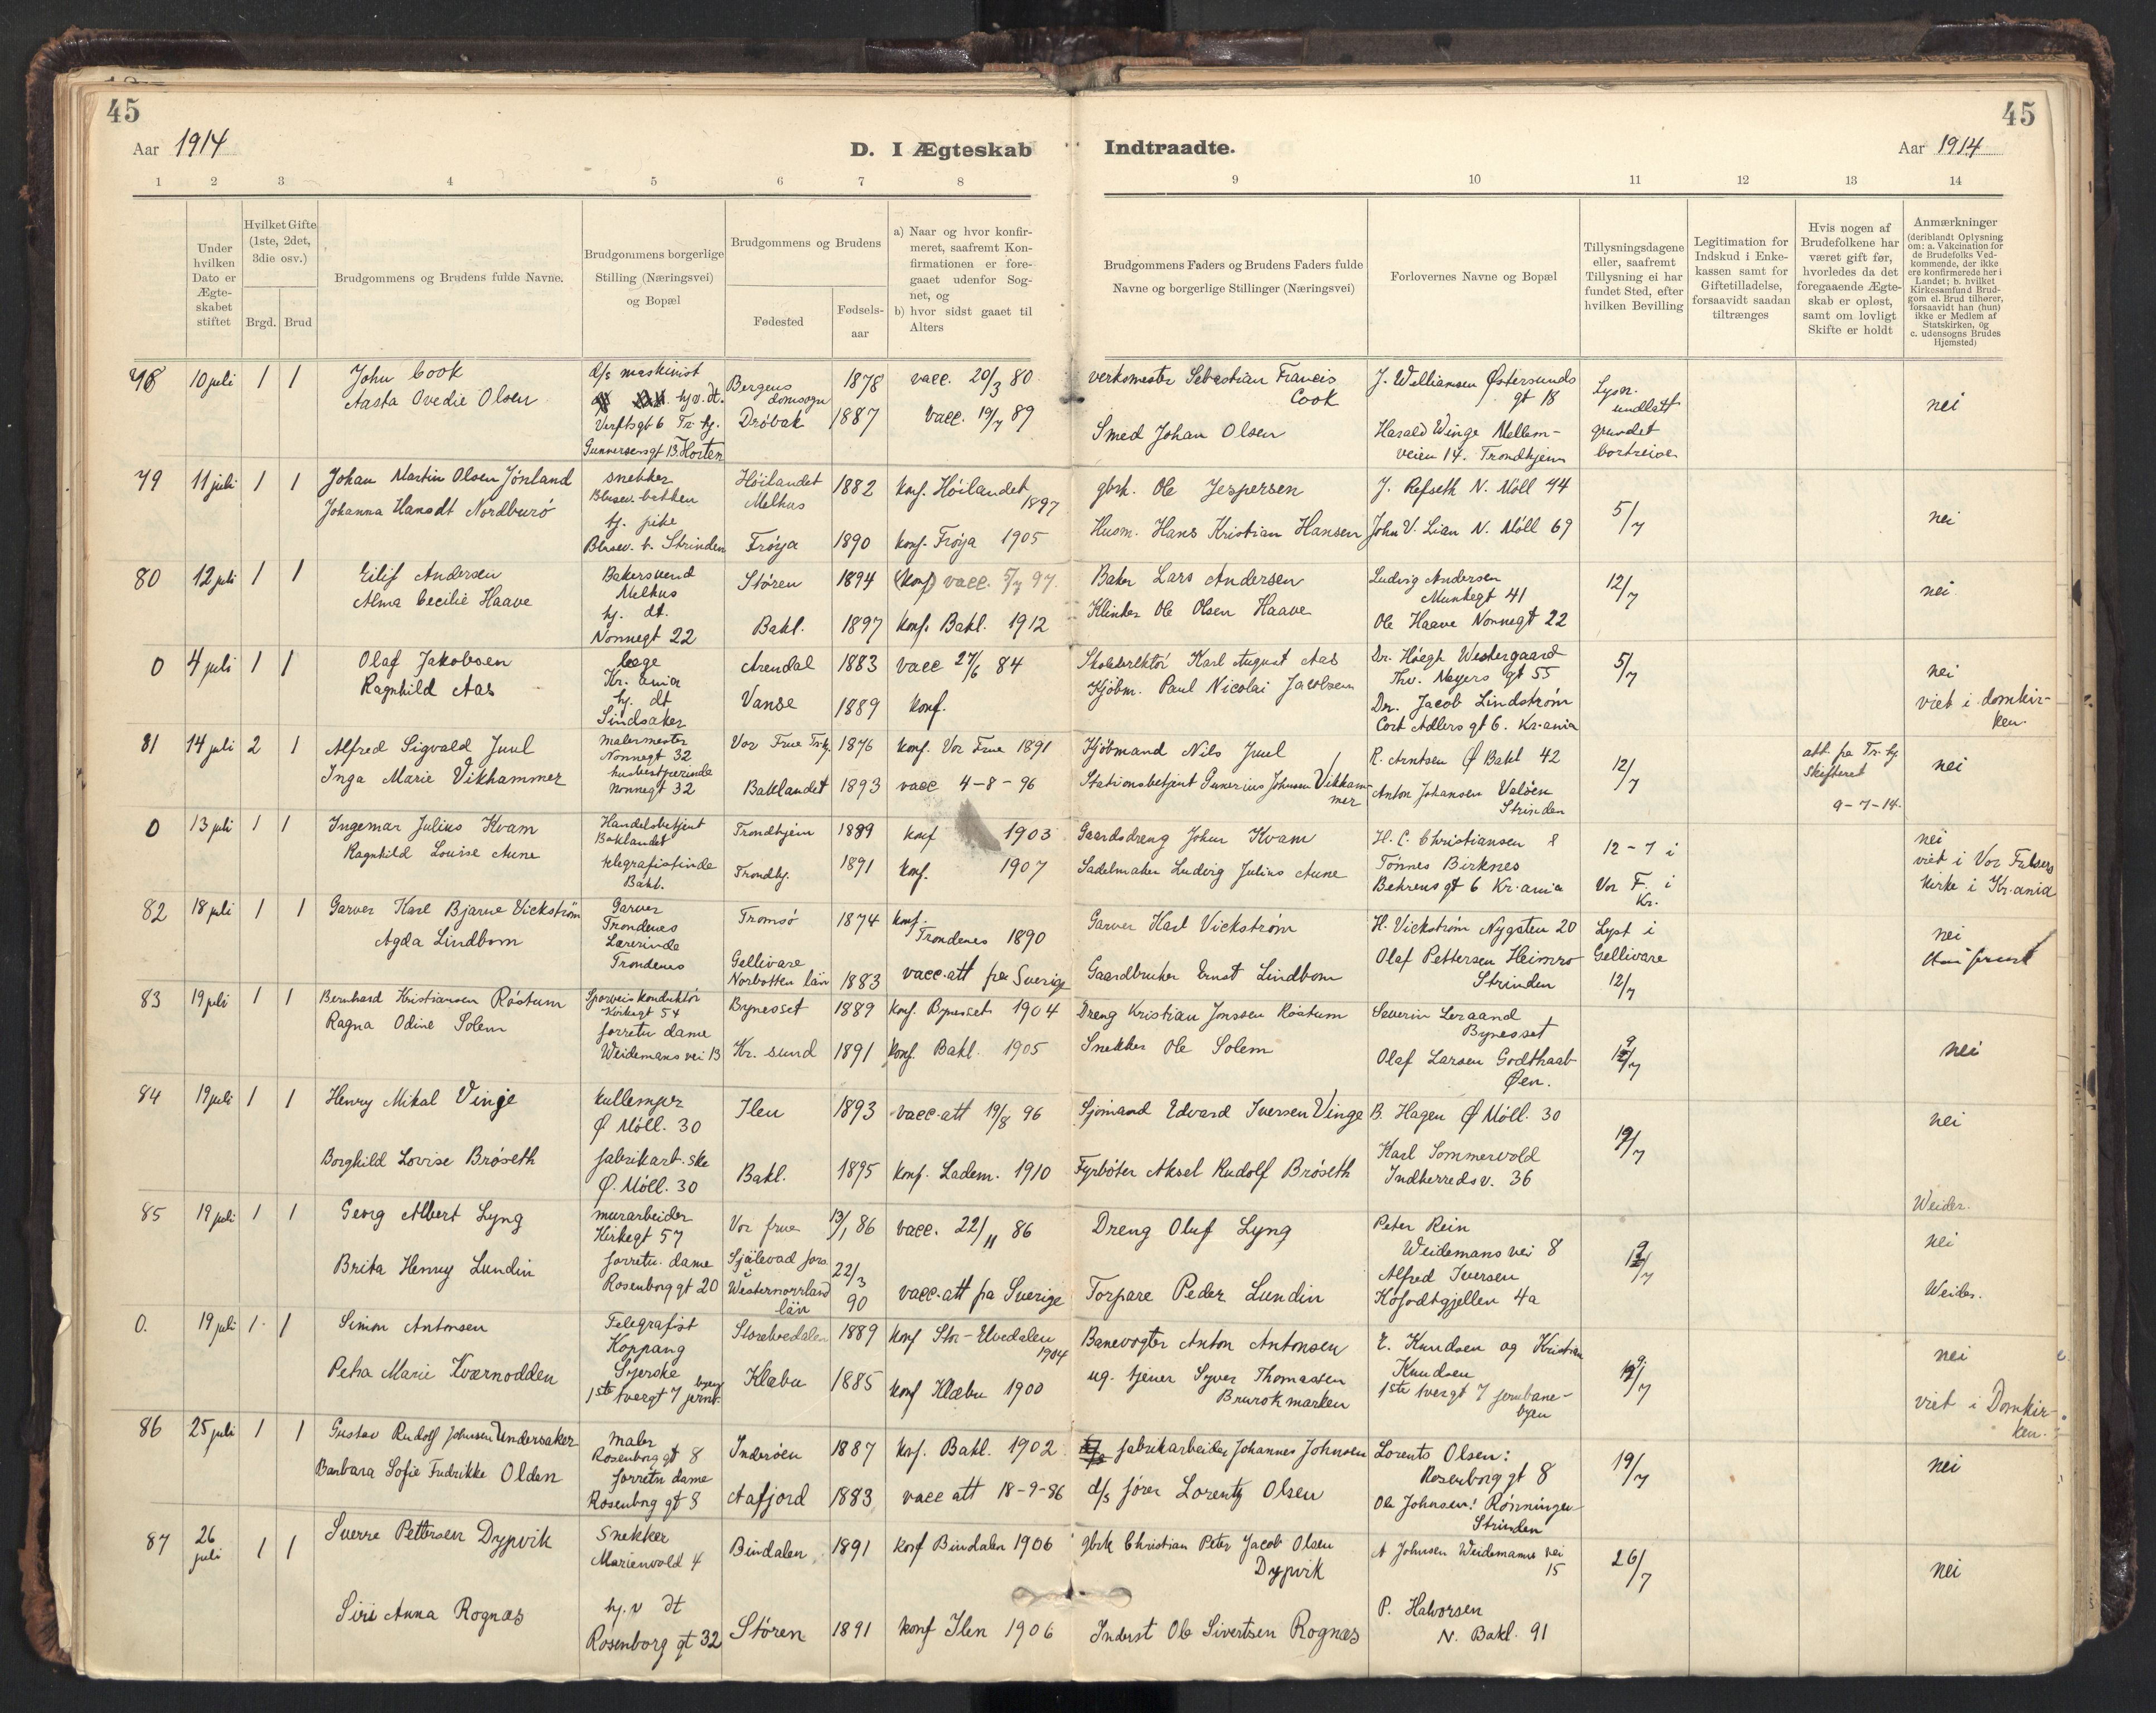 45
45
Aar 1914
D. I Ægteskab
Indtraadte.
Aar 1914
1 2 3 4 5 6 7 8 9 10 11 12 13 14
Under hvilken Dato er Ægte-skabet stiftet
Hvilket Gifte (1ste, 2det, 3die osv.)
Brgd. Brud
Brudgommens og Brudens fulde Navne.
Brudgommens borgerlige Stilling (Næringsvei) og Bopæl
Brudgommens og Brudens
Fødested
Fødsels-aar
a) Naar og hvor konfir-
meret, saafremt Kon-
firmationen er fore-
gaaet udenfor Sog-
net, og
b) hvor sidst gaaet til
Alters
Brudgommens Faders og Brudens Faders fulde
Navne og borgerlige Stillinger (Næringsvei)
Forlovernes Navne og Bopæl
Tillysningsdagene
eller, saafremt
Tillysning ei har
fundet Sted, efter
hvilken Bevilling
Legitimation for
Indskud i Enke-
kassen samt for
Giftetilladelse,
forsaavidt saadan
tiltrænges
Hvis nogen af
Brudefolkene har
været gift før,
hvorledes da det
foregaaende Ægte-
skab er opløst,
samt om lovligt
Skifte er holdt
Anmærkninger
(deriblandt Oplysning
om: a. Vakcination for
de Brudefolks Ved-
kommende, der ikke
ere konfirmerede her i
Landet; b. hvilket
Kirkesamfund Brud-
gom el. Brud tilhører,
forsaavidt han (hun)
ikke er Medlem af
Statskirken, og
c. udensogns Brudes
Hjemsted)
78 10 juli 1 1 John Cook d/s maskinist Bergens domsogn 1878 vacc. 20/3 80 verksmester Sebastian Francis Cook J. Williamsen Østersunds gt 18
Aasta Ovedie Olsen hj. v. dt. Verftsgt 6 Tr.hj. Gunnersensgt 13 Horten Drøbak 1887 vacc. 19/7 89 Smed Johan Olsen Harald Winge Mellem-veien 14. Trondhjem Lysn. undlatt grundet nei
79 11 juli 1 1 Johan Martin Olsen Jønland snekker Høilandet 1882 konf. Høilandet 1897 gbrk. Ole Jespersen J. Refseth N. Møll 44 5/7 nei
Johanna Hansdt Nordburø tj. pike Strinden Frøya 1890 konf. Frøya 1905 Husm. Hans Kristian Hansen John V. Lian N. Møll 69
80 12 juli 1 1 Eilif Andersen Bakersvend Melhus Støren 1894 (konf) vacc. 5/7 97. Baker Lars Andersen Ludvig Andersen Munkegt 41 12/7 nei
Alma Cecilie Haave hj. dt. Nonnegt 22 Bakl. 1897 konf. Bakl. 1912 Ole Olsen Haave Ole Haave Nonnegt 22
0 4 juli 1 1 Olaf Jakobsen læge Kr.ania Arendal 1883 vacc 27/6 84 Karl August Aas Dr. Høegh Westergaard Thv. Meyers gt 55 5/7 nei
Ragnhild Aas hj. dt Sindsaker Vanse 1889 konf. Kjøbm. Paul Nicolai Jacobsen Dr. Jacob Lindstrøm Cort Adlers gt 6. Kr.ania viet i domkir-ken.
81 14 juli 2 1 Alfred Sigvald Juul malermester Nonnegt 32 Vor Frue Tr.hj. 1876 konf. Vor Frue 1891 Kjøbmand Nils Juul R. Arntsen Ø Bakl 42 12/7 att. fra Tr.hj. skifteret 9-7-14. nei
Inga Marie Vikhammer husbestyrerinde Nonnegt 32 Baklandet 1893 vacc 4-8-96 Stationsbetjent Gunerius Johnsen Vikhammer Anton Johansen Valøen Strinden
0 13 juli 1 1 Ingemar Julius Kvam Handelsbetjent Baklandet Trondhjem 1889 konf 1903 Gaardsdreng Johan Kvam H. C. Christiansen & 12-7 i nei
Ragnhild Louise Aune telegrafistinde Bakl. Trondhj. 1891 konf. 1907 Sadelmaker Ludvig Julius Aune Tønnes Birknes Behrensgt 6 Kr.ania Vor F. i Kr. viet i Vor Frelsers kirke i Kr.ania
82 18 juli 1 1 Garver Karl Bjarne Vickstrøm Garver Trondenes Tromsø 1874 konf. Trondenes 1890 Garver Karl Vickstrøm H. Vickstrøm Nygaten 20 Lyst i Gellivare 12/7 nei
Agda Lindbom Lærerinde Trondenes Gellivare Norbotten län 1883 vacc.att fra Sverige Gaardbruker Ernst Lindbom Olaf Pettersen Heimro Strinden
83 19 juli 1 1 Bernhard Kristiansen Røstum Sporveiskonduktør Kirkegt 54 Bynesset 1889 konf. Bynesset 1904 Dreng Kristian Jonssen Røstum Severin Leraand Bynesset nei
Ragna Odine Solem forretn dame Weidemans vei 13 Kr.sund 1891 konf. Bakl. 1905 Snekker Ole Solem Olaf Larsen Godthaab Øen.
84 19 juli 1 1 Henry Mikal Vinje kullemper Ø Møll. 30 Ilen 1893 vacc.att 19/8 96 Sjømand Edvard Iversen Vinge B. Hagen Ø Møll. 30 nei
Borghild Lovise Brøseth fabrikarb.ske Ø. Møll. 30 Bakl. 1895 konf. Ladem. 1910 Fyrbøter Aksel Rudolf Brøseth Karl Sommervold Indherredsv. 36
85 19 juli 1 1 Georg Albert Lyng murarbeider Kirkegt 57 Vor frue 13/1 86 vacc. 22/11 86 Dreng Oluf Lyng Peter Rein Weidemans vei 8 Weider. nei
Brita Henny Lundin forretn. dame Rosenborg gt 20 Själevad Westernorrland län 22/3 90 vacc.att fra Sverige Torpare Peder Lundin Alfred Iversen 4a Weider.
0. 19 juli 1 1 Simon Antonsen Telegrafist Koppang Storelvedalen 1889 konf Stor-Elvedalen 1904 Banevogter Anton Antonsen E. Knudsen og Kristian Knudsen nei
Petra Marie Kværnodden Syerske 1ste tvergt 7 jernb.byen Klæbu 1885 konf Klæbu 1900 ug. tjener Syver Thomassen Brurokmarken 1ste tvergt 7 jernbane-byen viet i Domkir-ken.
86 25 juli 1 1 Gustav Rudolf Johnsen Undersaker maler Rosenborg gt 8 Inderøen 1887 konf. Bakl. 1902 fabrikarbeider Johannes Johnsen Lorents Olsen: Rosenborg gt 8 19/7 nei
Barbara Sofie Fredrikke Olden forretn dame Rosenborg gt 8 Aafjord 1883 vacc att 18-9-86 d/s fører Lorentz Olsen Ole Johnsen: Rønningen Strinden
87 26 juli 1 1 Sverre Pettersen Dypvik Snekker Marienvold 4 Bindalen 1891 konf Bindalen 1906 gbrk Christian Peter Jacob Olsen Dypvik A Johnsen Weidemanns vei 15 26/7 nei
Siri Anna Rognæs hj.v dt Rosenborg gt 32 Støren 1891 konf Ilen 1906 Inderst Ole Sivertsen Rognæs P. Halvorsen N. Bakl. 91